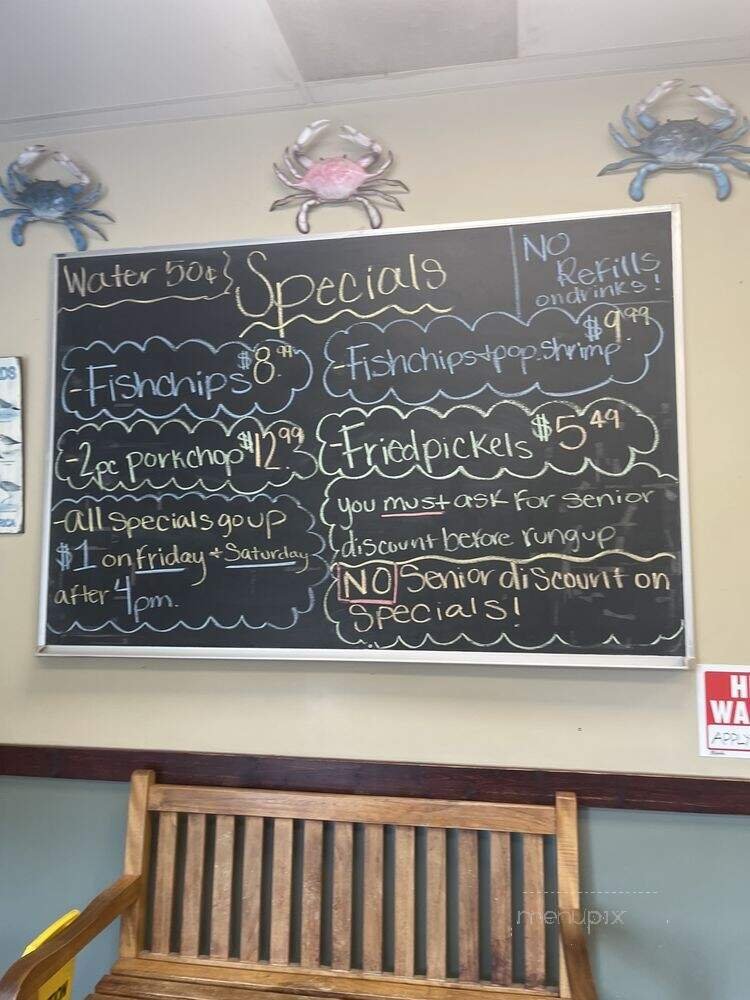 Water 50¢
Specials
NO
Refills
on drinks!
-Fishchips $8.99
-Fishchips+pop.shrimp $9.99
-2pc porkchop $12.99
-Friedpickels $5.49
-all specials go up
$1 on friday + Saturday
after 4pm.
you must ask for senior
discount before rungup
NO Senior discount on
specials!
DS
RICA
H
WA
APPLY
menupix